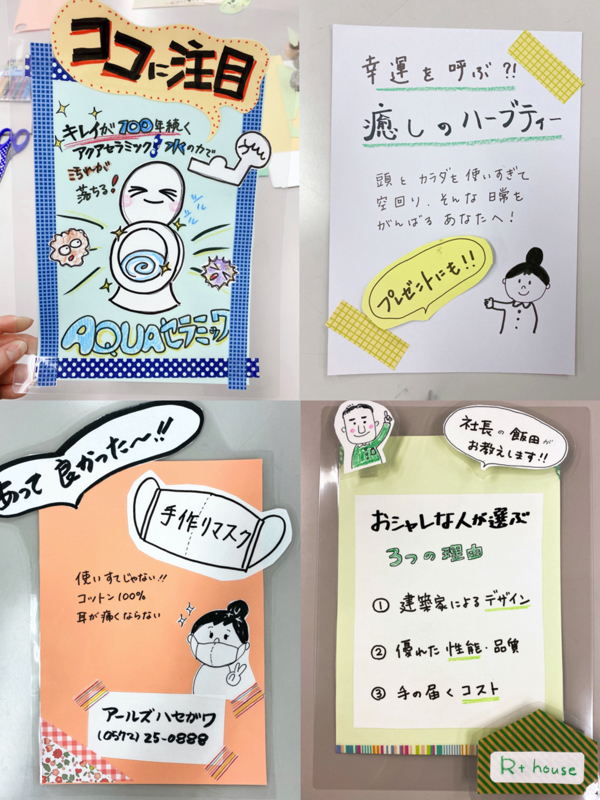 ココに注目
キレイが100年続く
アクアセラミック
水の力で
汚れが
落ちる!
ツルツル
AQUAセラミック
幸運を呼ぶ?!
癒しのハーブティー
頭とカラダを使いすぎて
空回り、そんな日常を
がんばるあなたへ!
プレゼントにも!!
あって良かった〜!!
手作りマスク
使いすてじゃない!!
コットン100%
耳が痛くならない
アールズハセガワ
(0572)25-0888
社長の飯田が
お教えします!!
おシャレな人が選ぶ
3つの理由
① 建築家によるデザイン
② 優れた性能・品質
③ 手の届くコスト
R+house